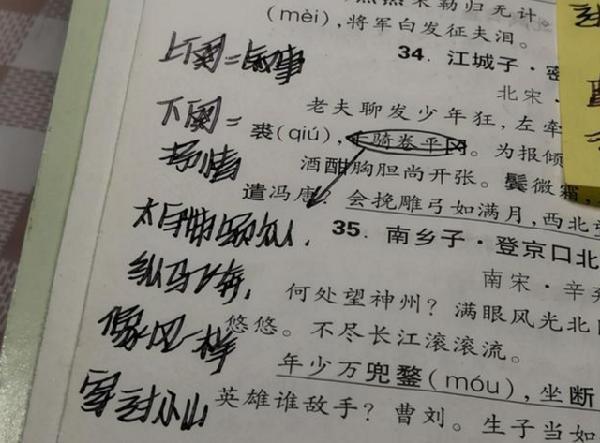 勒归无计。
(mèi)，将军白发征夫泪。
34. 江城子·密
北宋·
老夫聊发少年狂，左牵
裘(qiú)，千骑卷平冈。为报倾
酒酣胸胆尚开张。鬓微霜，
遣冯唐？会挽雕弓如满月，西北望
35. 南乡子·登京口北
南宋·辛弃
何处望神州？满眼风光北
悠悠。不尽长江滚滚流。
年少万兜鍪(móu)，坐断
英雄谁敌手？曹刘。生子当如
上阕=叙事
下阕=
抒情
太守带领众人，
纵马飞奔，
像风一样
穿过小山